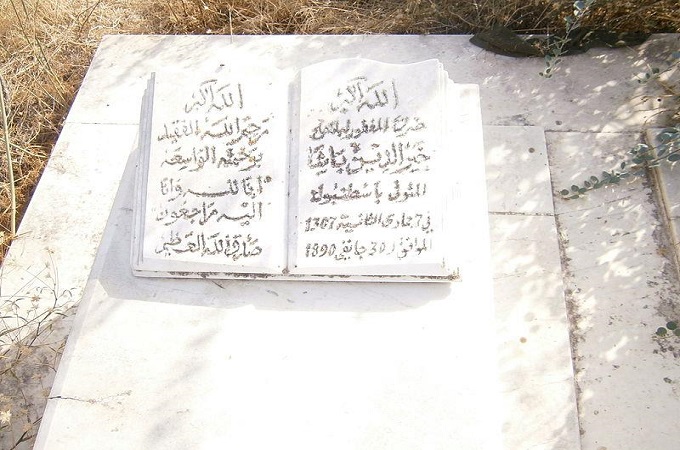 الله أكبر
ضريح المغفور له المنعم
خير الدين باشا
المتوفى بإسطنبول
في 7 جمادى الثانية 1307
الموافق لـ 30 جانفي 1890
الله أكبر
رحم الله الفقيد
برحمته الواسعة
إنا لله وإنا
إليه راجعون
صدق الله العظيم